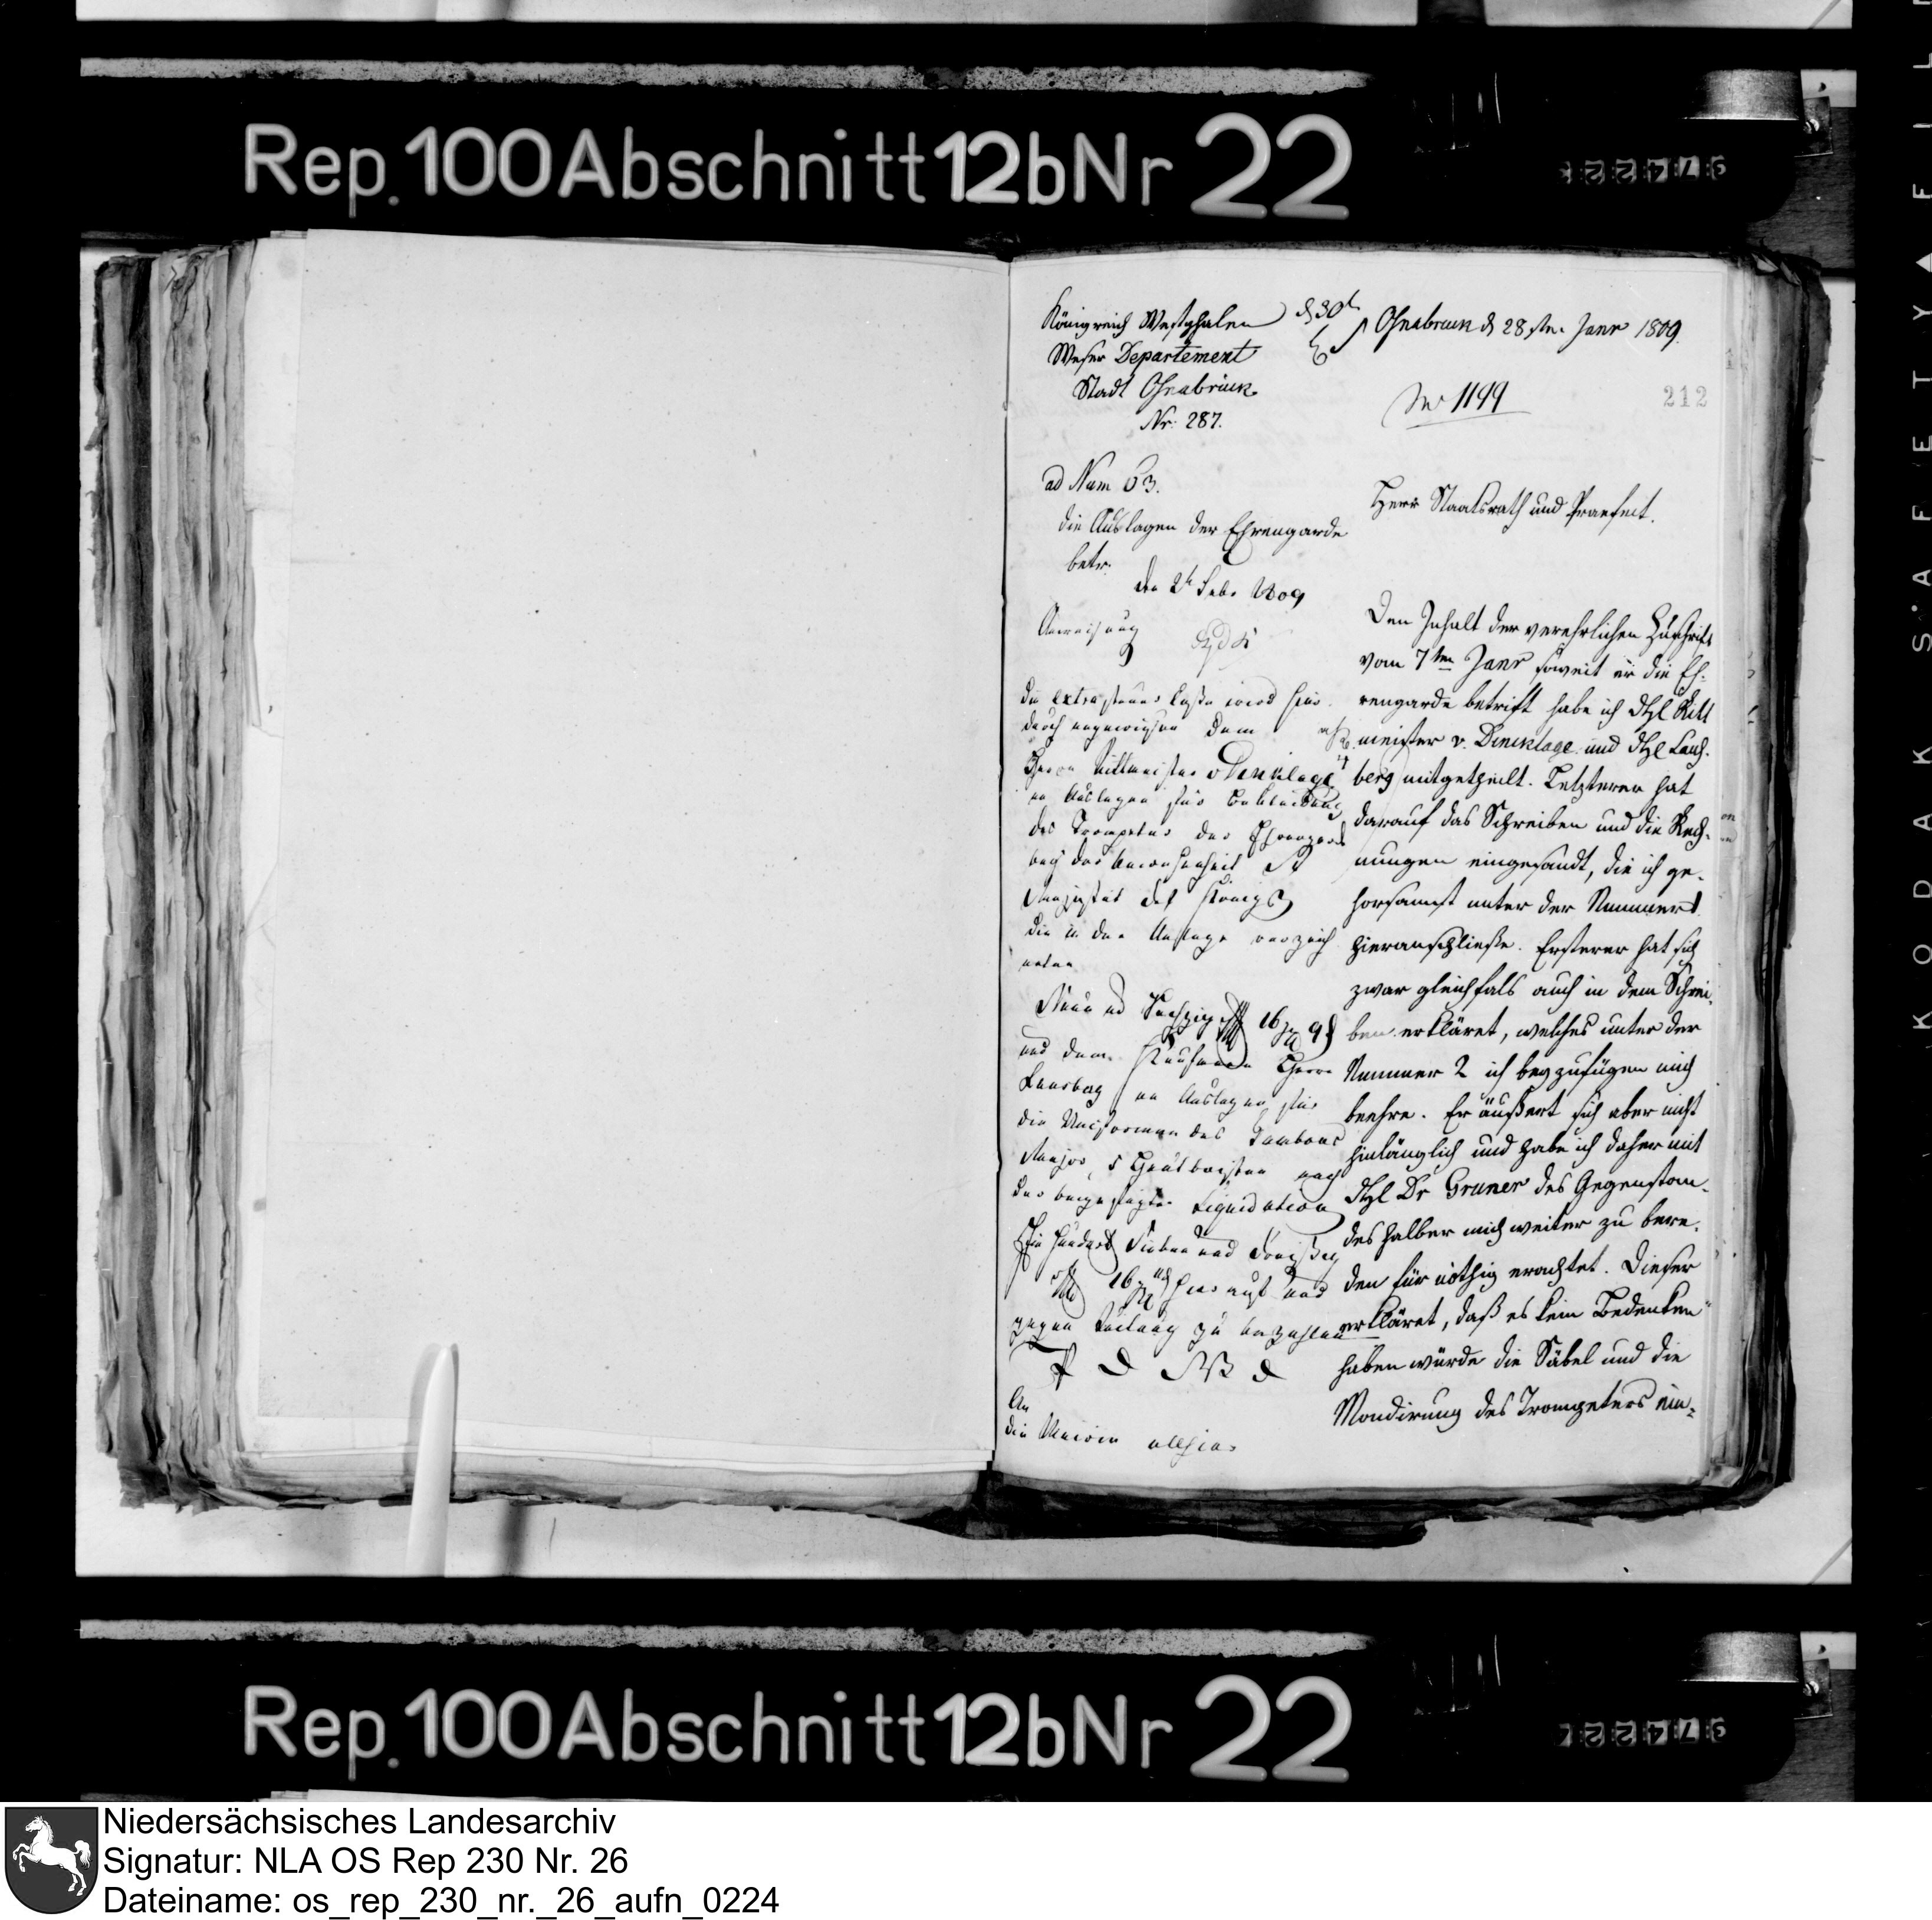 Rep. 100 Abschnitt 12b Nr 22
Königreich Westphalen
Weser Departement
Stadt Osnabrück
Nr. 287.
d 30t
Osnabrück d 28sten Janr 1809.
No 1199
212
ad Num 63.
die Auslagen der Ehrengarde
betr.
den 2t Febr 1809
Anweisung
Die extrasteuer Casse wird hier
durch angewiesen dem
Herrn Rittmeister v Dincklage
an Auslagen für
des Trompeter der Ehrengarde
bey der Anwesenheit Sr
Majestät des Königs
die in der Anlage verzeich
neten
Neun und Sechzig 16 9
und dem Kaufmann Herrn
an Auslagen für
die Uniformen des Tambour
Major, 5 Hautboisten nach
der beygefügten Liquidation
Ein hundert Sieben und Dreißig
16 hierauf und
gegen Quitung zu bezahlen
P D W D
An
die
Herr Staatsrath und Praefect.
Den Inhalt der verehrlichen Zuschrift
vom 7ten Janr soweit er die Eh-
rengarde betrift habe ich dHl Ritt
meister v. Dincklage und dHl
berg mitgetheilt. Letzterer hat
darauf das Schreiben und die Rech-
nungen eingesandt, die ich ge-
horsamst unter der Nummer 1
hieranschließe. Ersterer hat sich
zwar gleichfals auch in dem Schrei-
ben erkläret, welches unter der
Nummer 2 ich beyzufügen mich
beehre. Er äußert sich aber nicht
hinlänglich und habe ich daher mit
dHl Dr Gruner des Gegenstan-
des halber mich weiter zu bere-
den für nöthig erachtet. Dieser
erkläret, daß es kein Bedenken
haben würde die Säbel und die
Mondirung des Trompeters ein-
Rep. 100 Abschnitt 12b Nr 22
KODAK SAFETY FILM
Niedersächsisches Landesarchiv
Signatur: NLA OS Rep 230 Nr. 26
Dateiname: os_rep_230_nr._26_aufn_0224